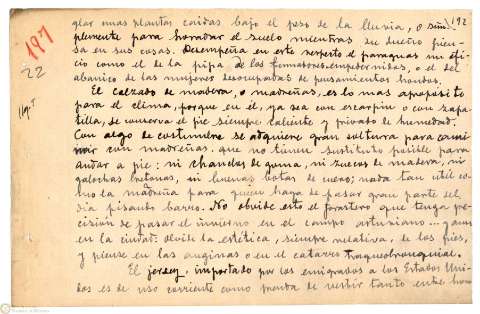 197
22
192
glar unas plantas caidas bajo el peso de la lluvia, o sim-
plemente para horadar el suelo mientras su dueño pien-
sa en sus cosas. Desempeña en este respecto el paraguas un ofi-
cio como el de la pipa de los fumadores empedernidos, o el del
abanico de las mujeres desocupadas de pensamientos hondos.
El calzado de madera, o madreñas, es lo mas apropósito
para el clima, porque en el, ya sea con escarpin o con zapa-
tilla, se conserva el pie siempre caliente y privado de humedad.
Con algo de costumbre se adquiere gran soltura para cami-
nar con madreñas que no tienen sustituto posible para
andar a pie: ni chanclos de goma, ni suecos de madera, ni
galochas bretonas, ni buenas botas de cuero; nada tan util co-
mo la madreña para quien haya de pasar gran parte del
dia pisando barro. No olvide esto el forastero que tenga pre-
cisión de pasar el invierno en el campo asturiano... y aun
en la ciudad: olvide la estética, siempre relativa, de los pies,
y piense en las anginas o en el catarro traqueobronquial.
El jersey importado por los emigrados a los Estados Uni-
dos es de uso corriente como prenda de vestir tanto entre hom